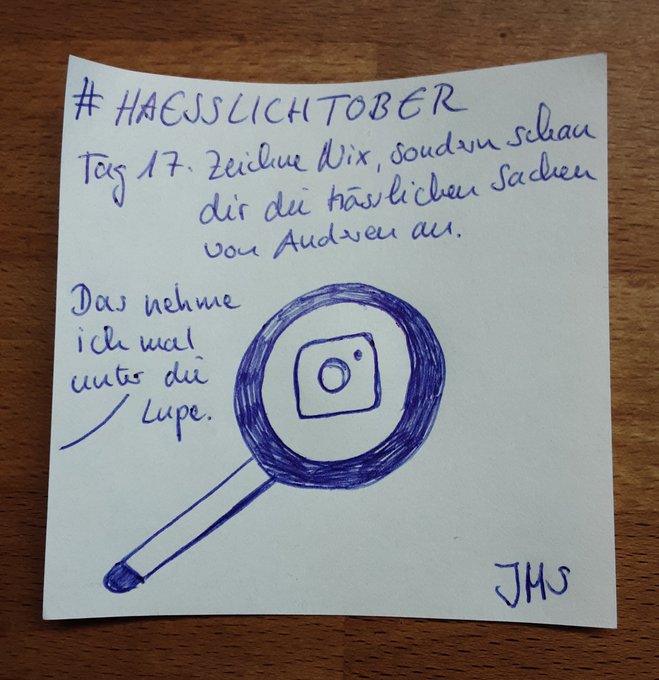 #HAESSLICHTOBER
Tag 17. Zeichne Nix, sondern schau
dir die hässlichen Sachen
von Anderen an.
Das nehme
ich mal
unter die
Lupe.
JMS